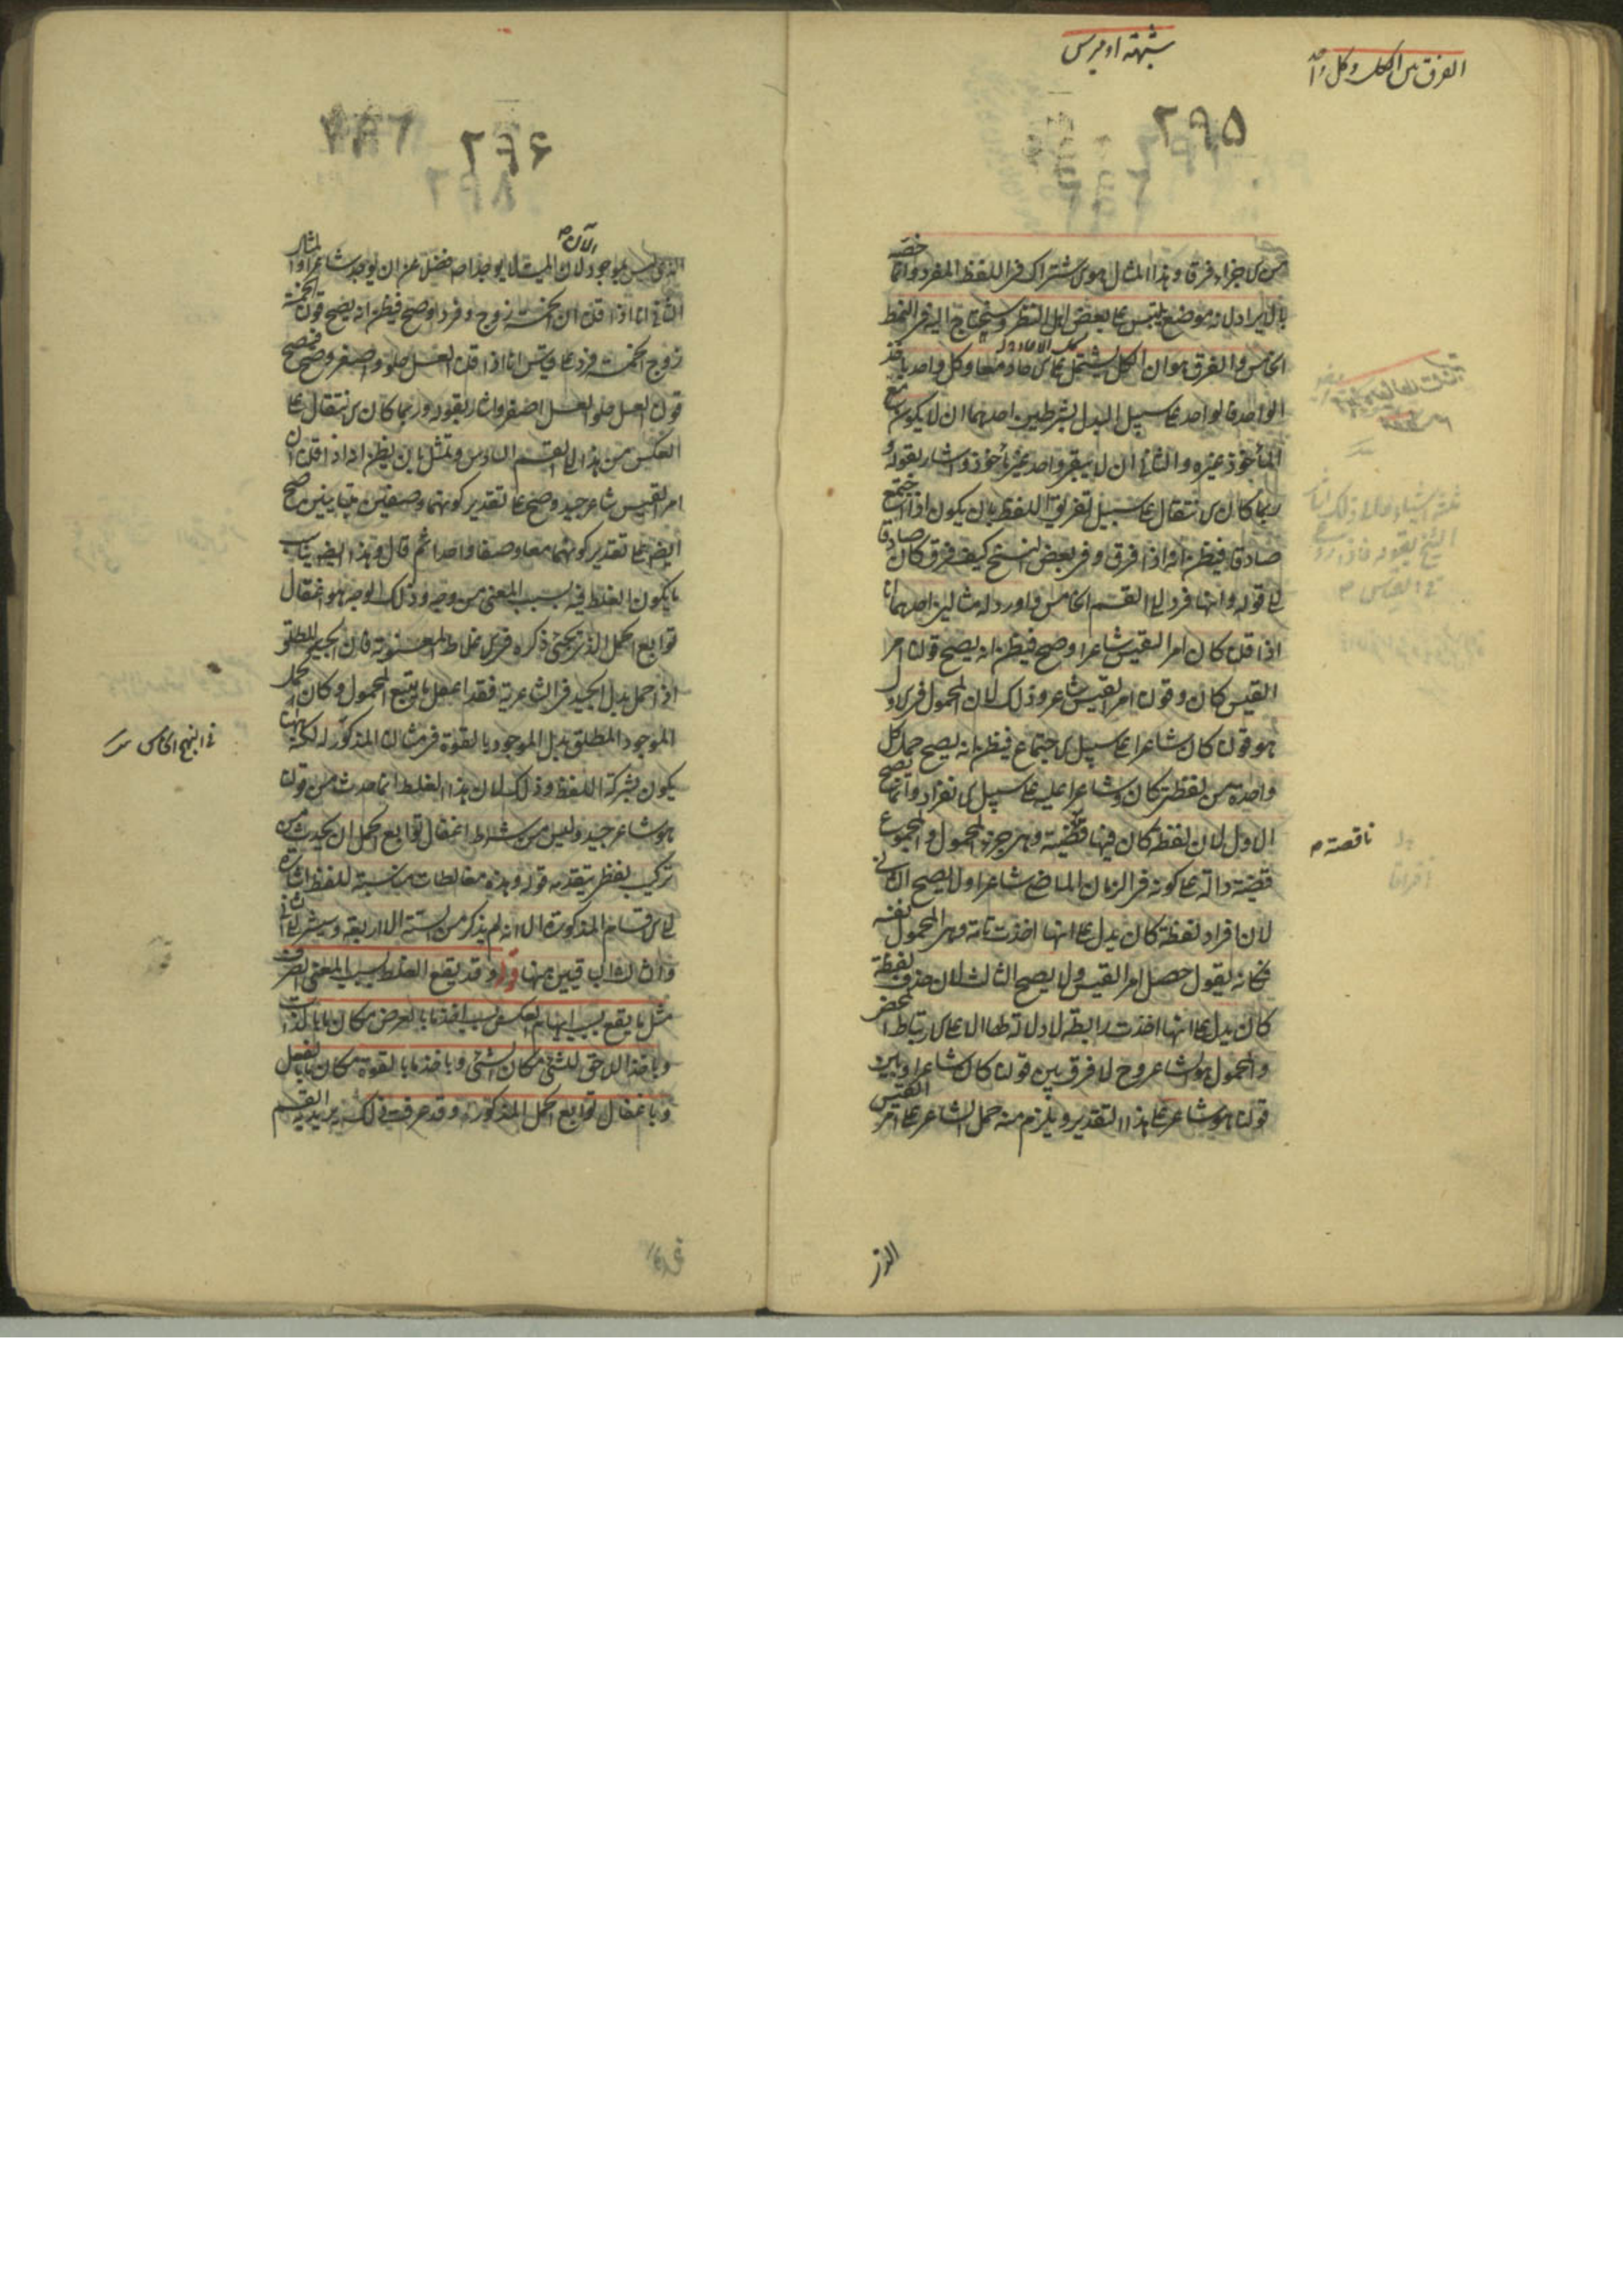 الفرق بين الكل وكل واحد
شبهة اوميرس
٢٩٥
من الاجزاء فرقا وهذا المثال هو الاشتراك فى اللفظ المفرد وانما خصه
بالايراد لانه موضع يلتبس على بعض اهل النظر وسيحتاج اليه فى النمط
الخامس والفرق هو ان الكل يشتمل على الاحاد معا وكل واحد ياخذ
الواحد فالواحد على سبيل البدل بشرطين احدهما ان لا يكون مع
المأخوذ غيره والثانى ان لا يبقى واحد غير مأخوذ واشار بقوله
ربما كان الانتقال على سبيل تفريق اللفظ بان يكون اذا اجتمع
صادقا فيظن انه اذا افرق وفى بعض النسخ كيف فرق كان صادقا
الى قوله وانها فرد الى القسم الخامس واورد له مثالين احدهما انا
اذا قلنا كان امرء القيس شاعرا وصح فيظن انه يصح قولنا امرء
القيس كان وقولنا امرء القيس شاعر وذلك لان المحمول فى الاول
هو قولنا كان شاعرا على سبيل الاجتماع فيظن انه يصح حمل كل
واحدة من لفظتى كان وشاعرا عليه على سبيل الانفراد وانما يصح
الاول لان لفظة كان فيها قضية وهى جزء المحمول والمجموع
ناقصة م
قضية دالة على كونه فى الزمان الماضى شاعرا ولا يصح الثانى
لان افراد لفظة كان يدل على انها اخذت تامة وهى المحمول نفسه
فكانه يقول حصل امرء القيس ولا يصح الثالث لان حذف لفظة
كان يدل على انها اخذت رابطة لا دلالة لها الا على الارتباط المحض
والمحمول هو شاعر وح لا فرق بين قولنا كان شاعرا وبين
قولنا هو شاعر على هذا التقدير ويلزم منه حمل الشاعر على امرء القيس
الذى
٢٩۶
الذى ليس بموجود لان الميت لا يوجد اصلا فضلا عن ان يوجد شاعرا والمثال
الآن م
الثانى انا اذا قلنا ان الخمسة زوج وفرد وصح فيظن انه يصح قولنا الخمسة
زوج الخمسة فرد وعلى قياس انا اذا قلنا العسل حلو واصفر وصح فيصح
قولنا العسل حلو العسل اصفر واشار بقوله وربما كان الانتقال على
العكس من هذا الى القسم السادس وتمثل بان يظن انه اذا قلنا ان
امرء القيس شاعر جيد وصح على تقدير كونهما وصفين متباينين صح
ايضا على تقدير كونهما معا وصفا واحدا ثم قال وهذا ايضا يناسب
ما يكون الغلط فيه بسبب المعنى من وجه وذلك الوجه هو اغفال
توابع الحمل الذى يجئ ذكره فى الاغلاط المعنوية فان الجيد المطلق
اذا حمل بدل الجيد فى الشاعرية فقد اغفل ما يتبع المحمول وكان كحمل
الموجود المطلق بدل الموجود بالقوة فى مثال المذكور له لكنه
فى النهج الخامس
يكون بشركة اللفظ وذلك لان هذا الغلط انما حدث من قولنا
هو شاعر جيد وليس من شرط اغفال توابع الحمل ان يحدث من
تركيب لفظ يتقدمه قوله وهذه مغالطات مناسبة للفظ اشارة
الى الاقسام المذكورة الا انه لم يذكر من الستة الا اربعة وسيشير الى
والثالث الباقيين منها وقد يقع الغلط بسبب المعنى الصرف
مثل ما يقع بسبب ايهام العكس وبسبب اخذ ما بالعرض مكان ما بالذات
وباخذ اللاحق للشئ مكان الشئ وباخذ ما بالقوة مكان ما بالفعل
وباغفال توابع الحمل المذكورة وقد عرفت ذلك يريد به القسم